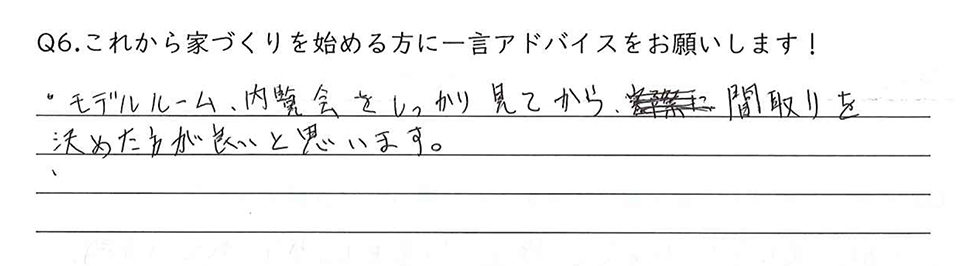 Q6.これから家づくりを始める方に一言アドバイスをお願いします！
・モデルルーム、内覧会をしっかり見てから、間取りを
決めた方が良いと思います。